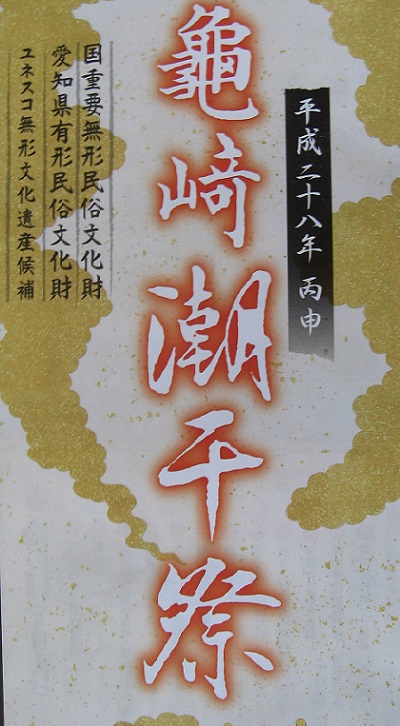 平成二十八年 丙申
龜崎潮干祭
国重要無形民俗文化財
愛知県有形民俗文化財
ユネスコ無形文化遺産候補